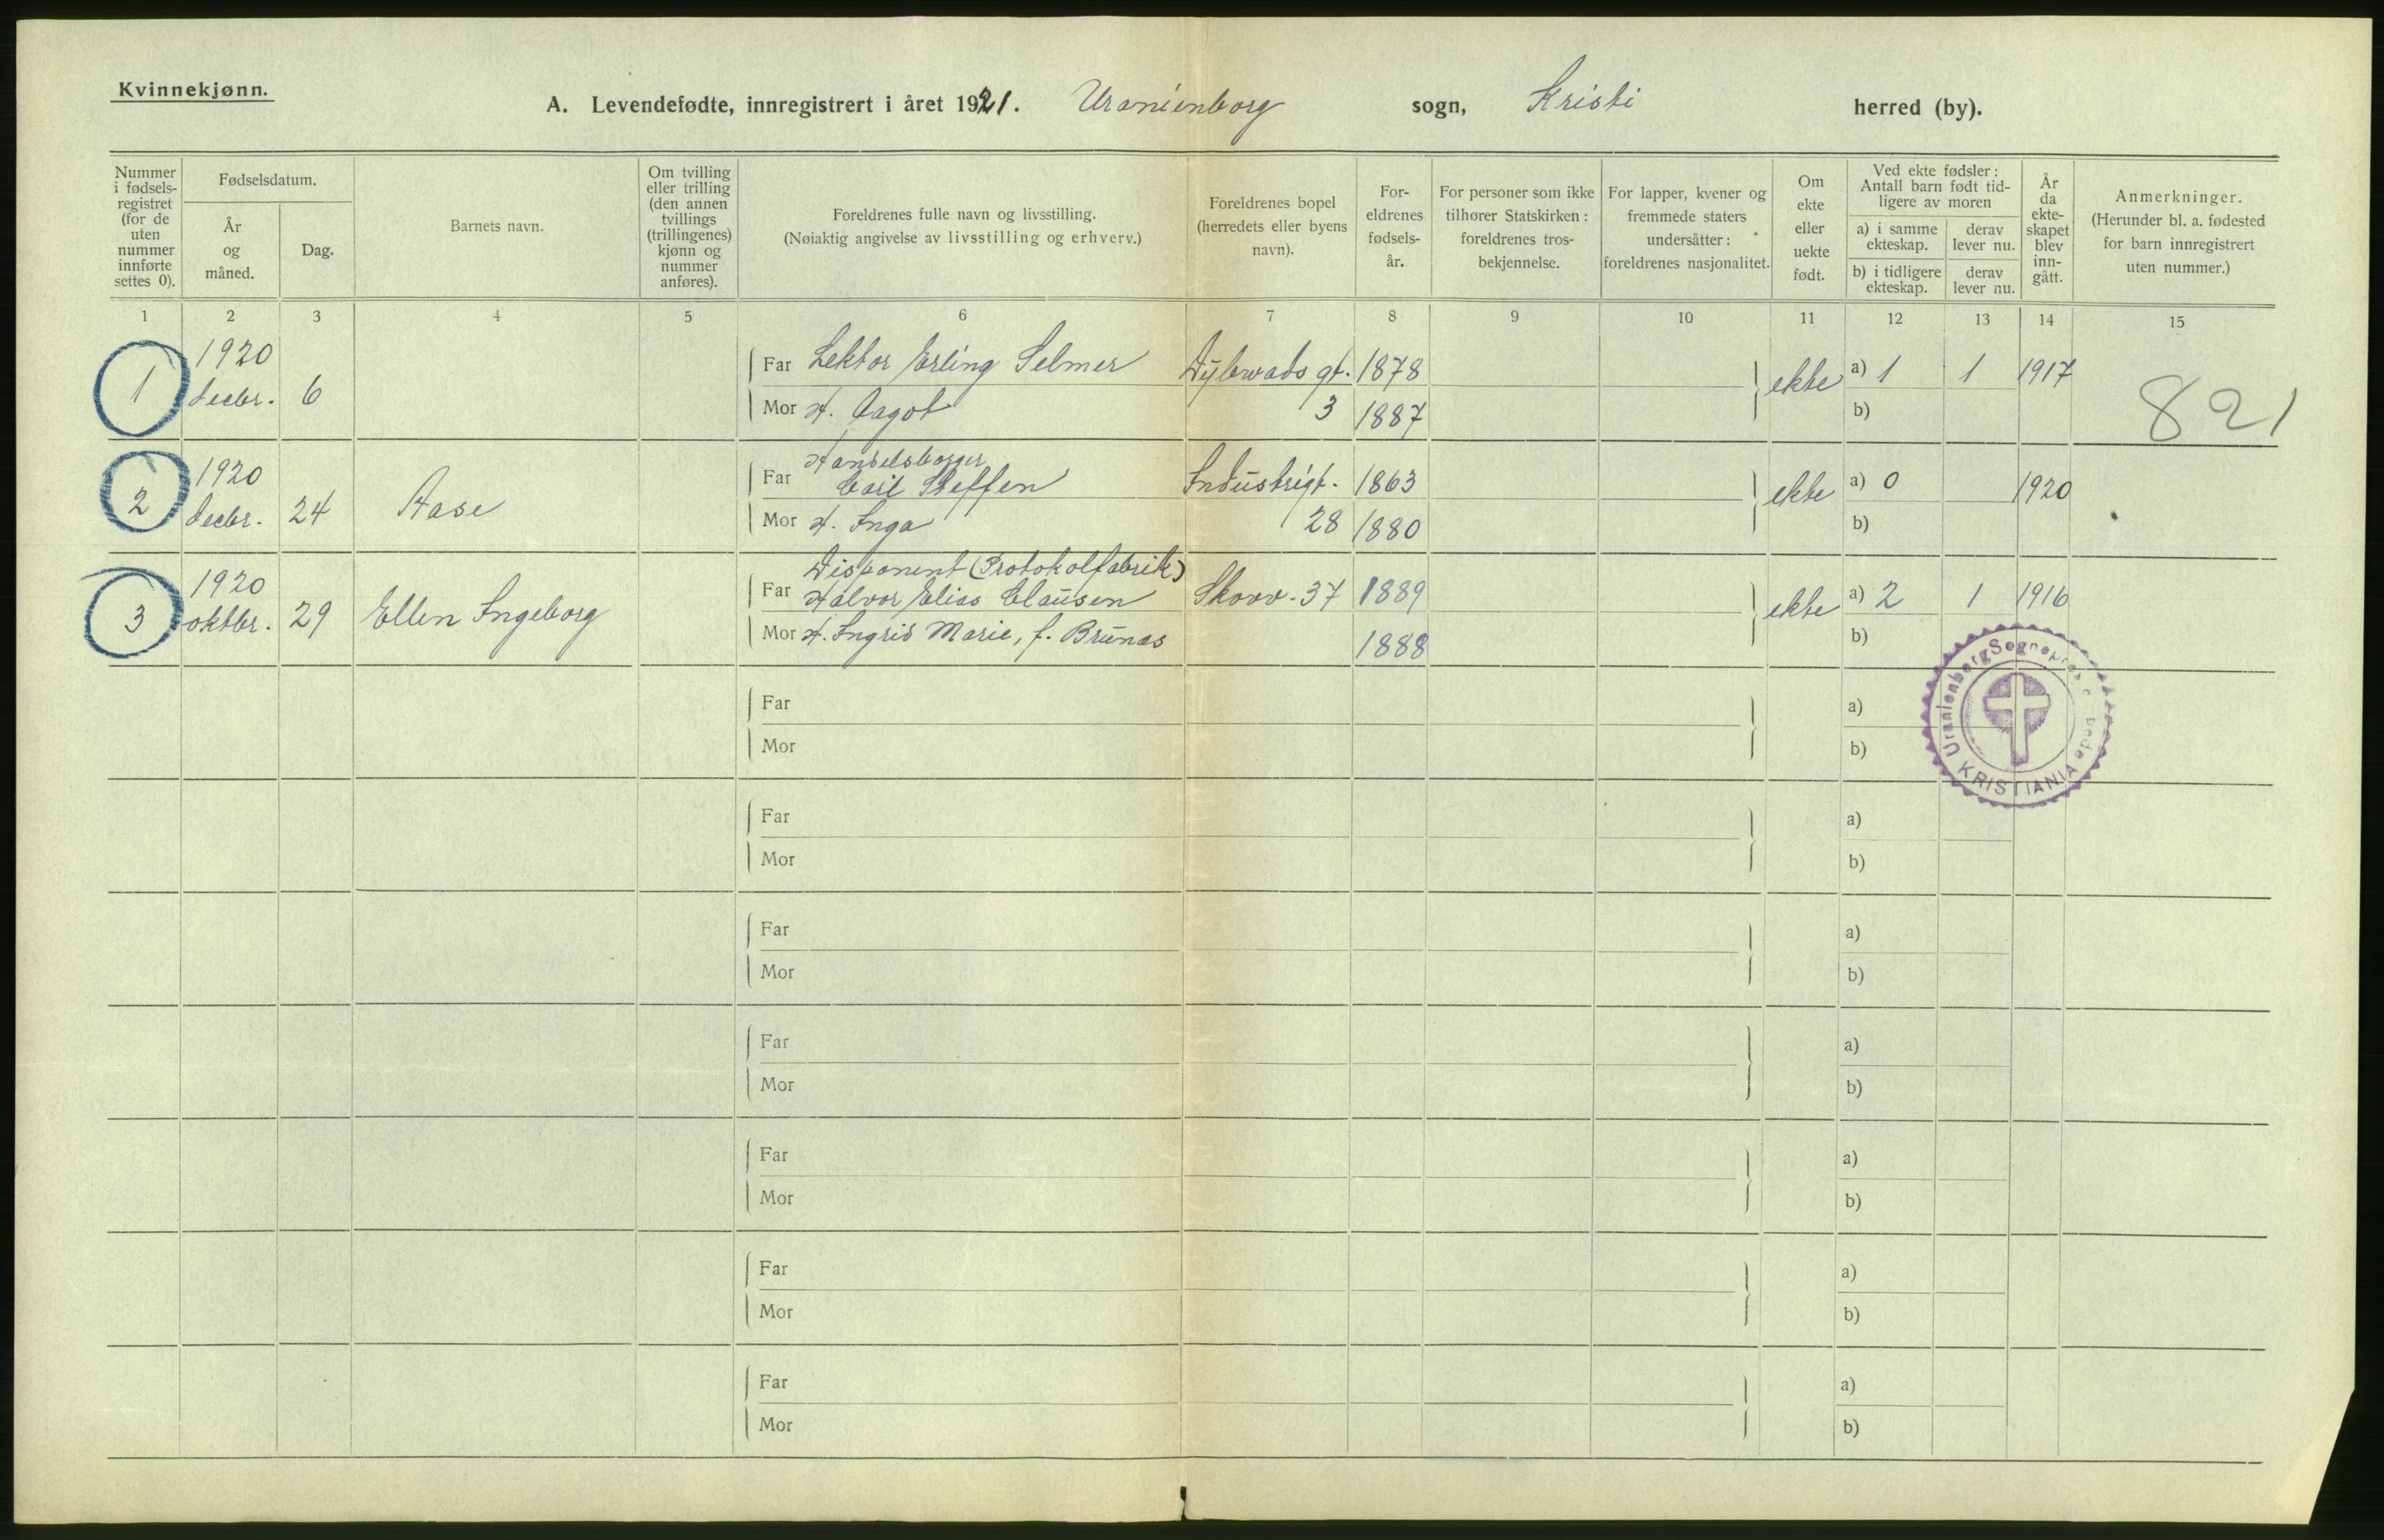 Kvinnekjønn.
A. Levendefødte, innregistrert i året 1921. Uranienborg sogn, Kristi herred (by).
Nummer i fødsels-registret (for de uten nummer innførte settes 0).
Fødselsdatum.
År og måned.
Dag.
Barnets navn.
Om tvilling eller trilling (den annen tvillings (trillingenes) kjønn og nummer anføres).
Foreldrenes fulle navn og livsstilling.
(Nøiaktig angivelse av livsstilling og erhverv.)
Foreldrenes bopel (herredets eller byens navn).
For-eldrenes fødsels-år.
For personer som ikke tilhører Statskirken: foreldrenes tros-bekjennelse.
For lapper, kvener og fremmede staters undersåtter: foreldrenes nasjonalitet.
Om ekte eller uekte født.
Ved ekte fødsler: Antall barn født tid-ligere av moren
a) i samme ekteskap.
derav lever nu.
b) i tidligere ekteskap.
derav lever nu.
År da ekte-skapet blev inn-gått.
Anmerkninger.
(Herunder bl. a. fødested for barn innregistrert uten nummer.)
1 2 3 4 5 6 7 8 9 10 11 12 13 14 15
1 1920 decbr. 6 Far Lektor Erling Selmer gt. 1878 ekte a) 1 1 1917
Mor H. Aagot 3 1887 b)
821
2 1920 decbr. 24 Aase Far Handelsborger Carl Steffen Industrigt. 1863 ekte a) 0 1920
Mor H. Inga 28 1880 b)
3 1920 oktbr. 29 Ellen Ingeborg Far Disponent (Protokolfabrik) Halvor Elias Clausen Skovv. 37 1889 ekte a) 2 1 1916
Mor H. Ingrid Marie, f. Brunæs 1888 b)
Uranienborg Sogneprestembede KRISTIANIA
Far a)
Mor b)
Far a)
Mor b)
Far a)
Mor b)
Far a)
Mor b)
Far a)
Mor b)
Far a)
Mor b)
Far a)
Mor b)